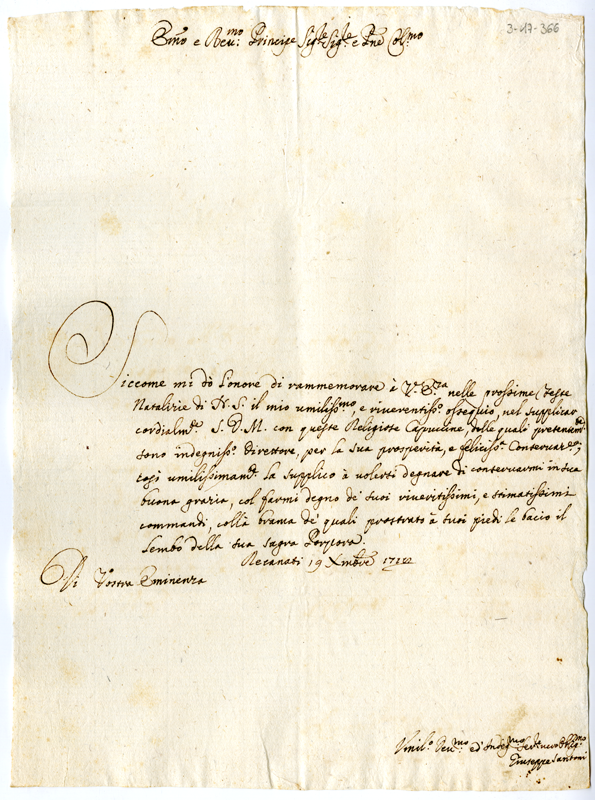 3-17-366
Emo e Reu:mo Principe Sigle Sigle e Pne Col:mo
Siccome mi dò l'onore di rammemorare à V:a E:za nelle prossime Feste
Natalizie di N.S. il mio umiliss:mo, e riverentiss:o ossequio, nel supplicar
cordialm:te S.D.M. con queste Religiose Capucine, delle quali
sono indegniss:o direttore, per la sua prosperità, e feliciss:a Conservaz:ne,
così umilissimam:te la supplico à volersi degnare di conservarmi in sua
buona grazia, col farmi degno de' suoi riveritissimi, e stimatissimi
commandi, colla brama de' quali prostrato à suoi piedi le bacio il
Lembo della sua sagra Porpora.
Recanati 19 Xmbre
Di Vostra Eminenza
Umil:o Deu:mo ed Indeg:mo Ser:re
Giuseppe Santoni